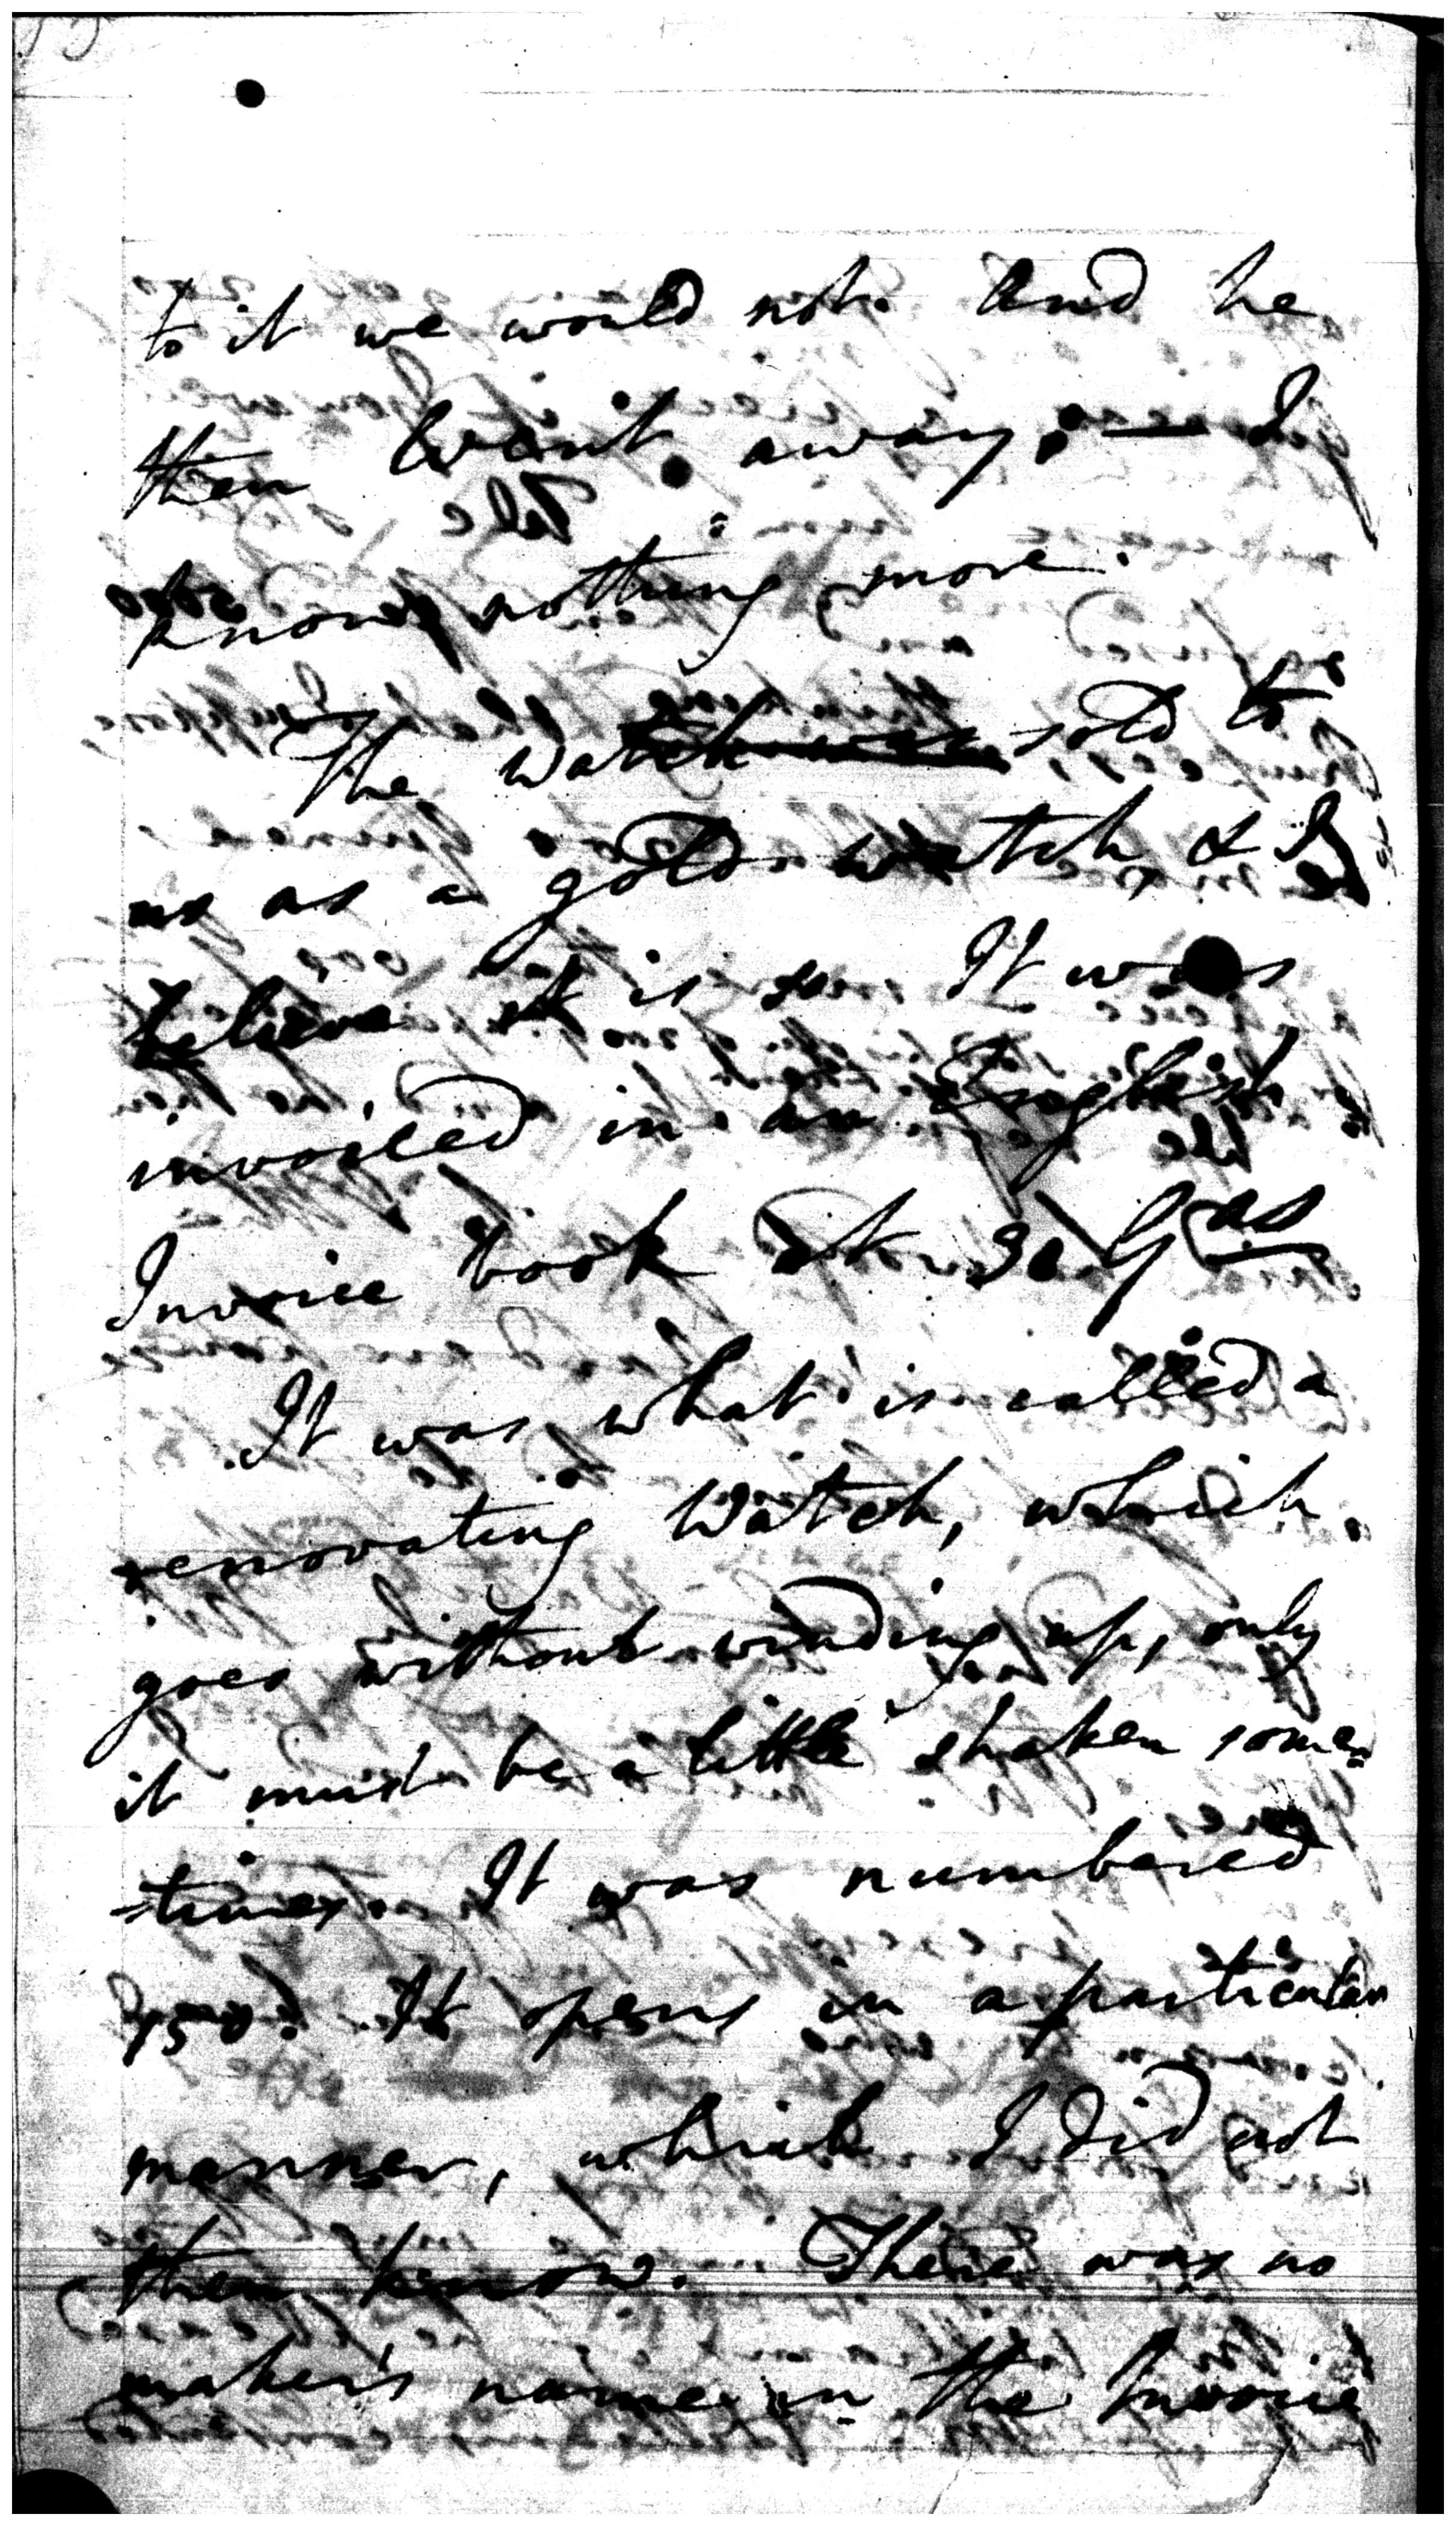 to it we would not. And he
then went away; — I
know nothing more.
The watch was sold to
us as a gold watch & I
believe it is so. It was
invoiced in an English
Invoice book at 30 Gas
It was what is called a
renovating Watch, which
goes without winding up, only
it must be a little shaken some=
=times. It was numbered
It opens in a particular
manner, which I did not
then know. There was no
maker's name in the Invoice